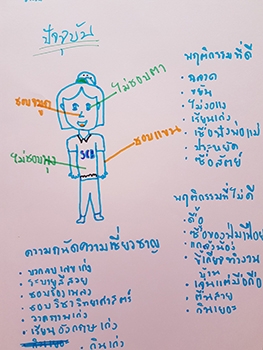 ปัจจุบัน
ไม่ชอบตา
ชอบจมูก
ชอบแขน
ไม่ชอบพุง
พฤติกรรมที่ดี
• ฉลาด
• ขยัน
• ไม่งอแง
• เรียนเก่ง
• เชื่อฟังพ่อแม่
• ประหยัด
• ซื่อสัตย์
พฤติกรรมที่ไม่ดี
• ดื้อ
• ซื้อของฟุ่มเฟือย
• แกล้งน้อง
• ขี้เกียจทำงาน
บ้าน
• เล่นแต่มือถือ
• ตื่นสาย
• กินเยอะ
ความถนัดความเชี่ยวชาญ
• บวกลบเลขเก่ง
• ระบายสีสวย
• ชอบร้องเพลง
• ชอบวิชาวิทยาศาสตร์
• วาดภาพเก่ง
• เรียนอังกฤษเก่ง
• กินเก่ง